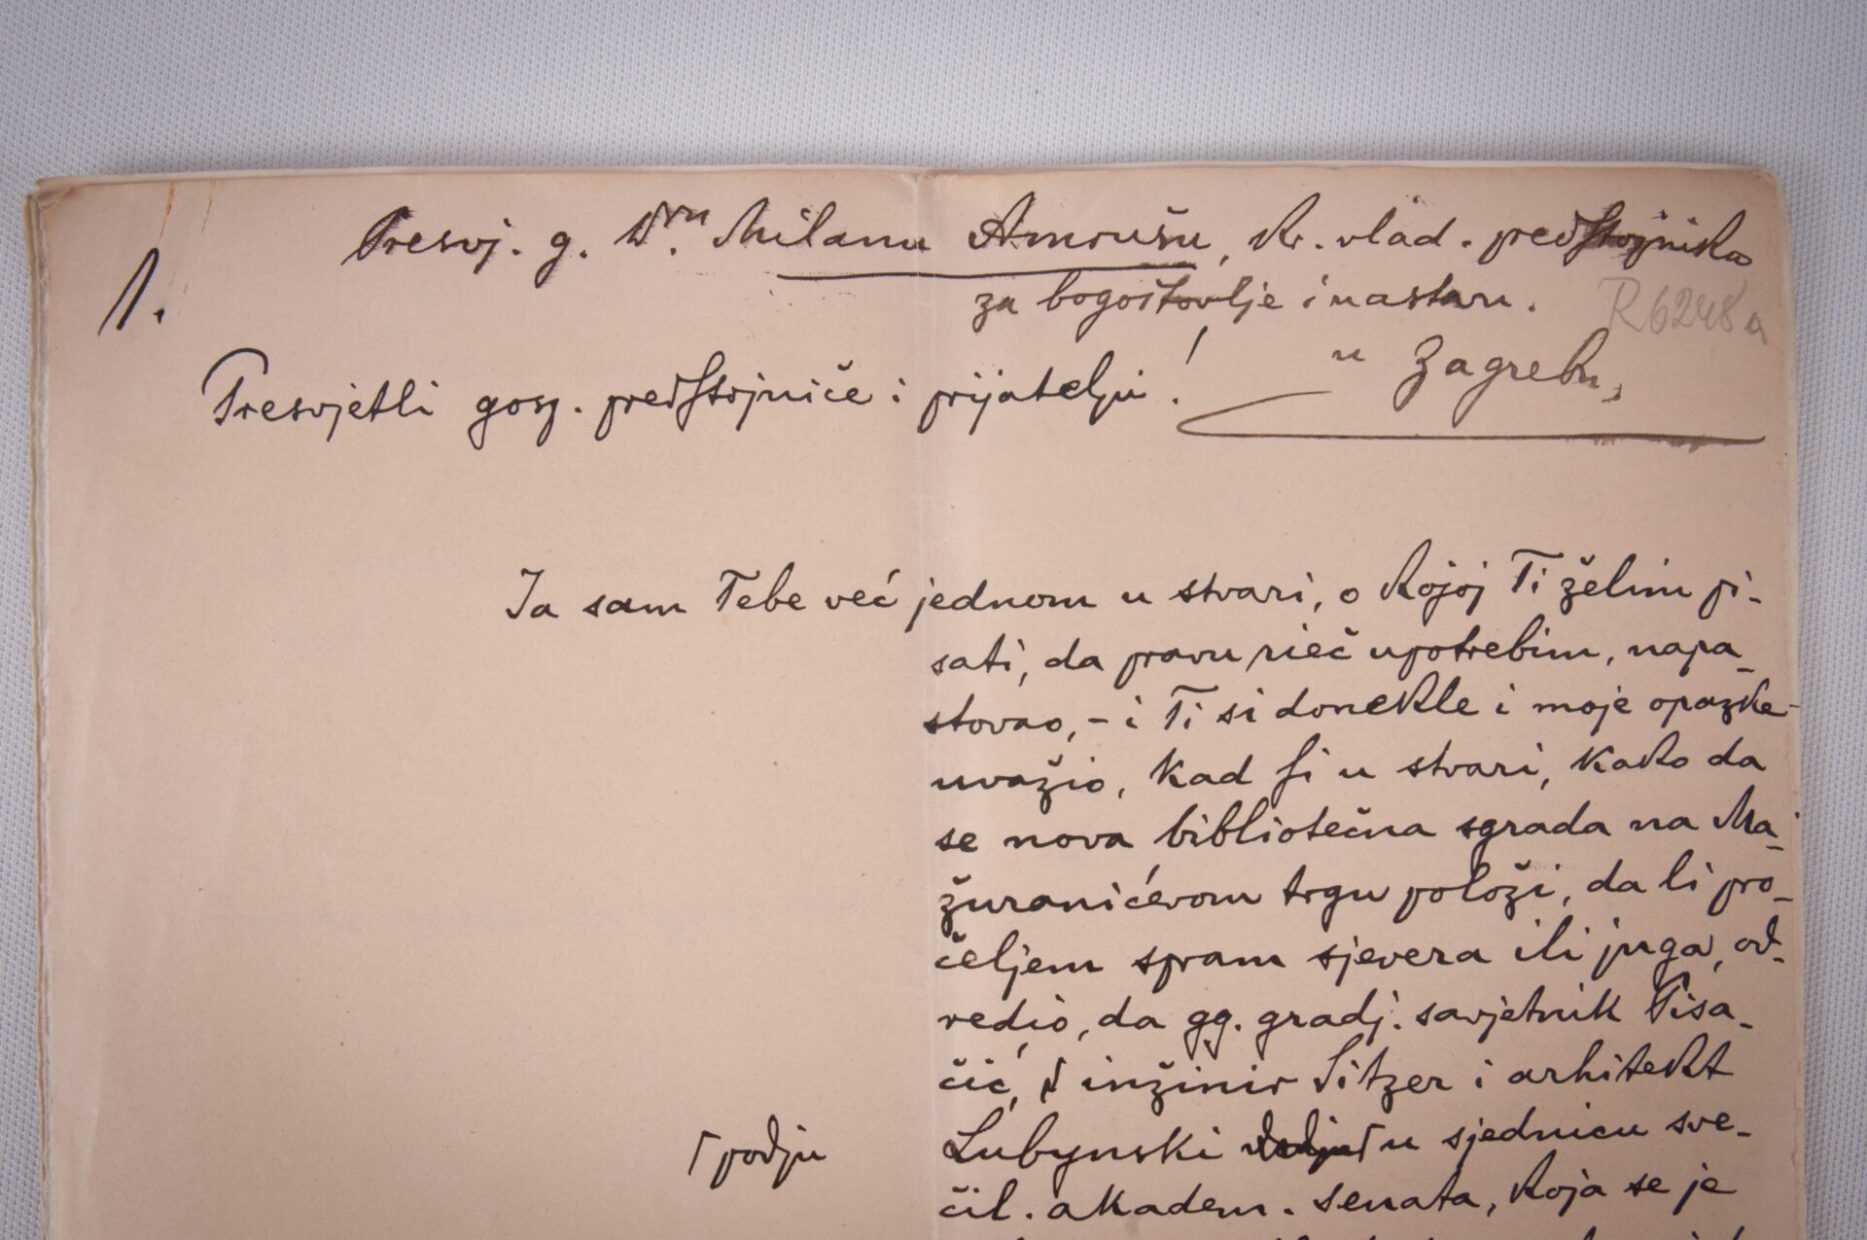 Presvj. g. Dru. Milanu Amrušu, kr. vlad. predstojnika
za bogoštovlje i nastavu.
R 6248 a
1.
u Zagrebu,
Presvjetli gosp. predstojniče i prijatelju!
Ja sam Tebe već jednom u stvari, o kojoj Ti želim pi-
sati, da pravu rieč upotrebim, napa-
stovao, - i Ti si donekle i moje opazke
uvažio, kad si u stvari, kako da
se nova bibliotečna sgrada na Ma-
žuranićevom trgu položi, da li pro-
čeljem spram sjevera ili juga, od-
redio, da gg. gradj. savjetnik Pisa-
čić, inžinir Sitzer i arhitekt
Lubynski u sjednicu sve-
podju
čil. akadem. senata, koja se je